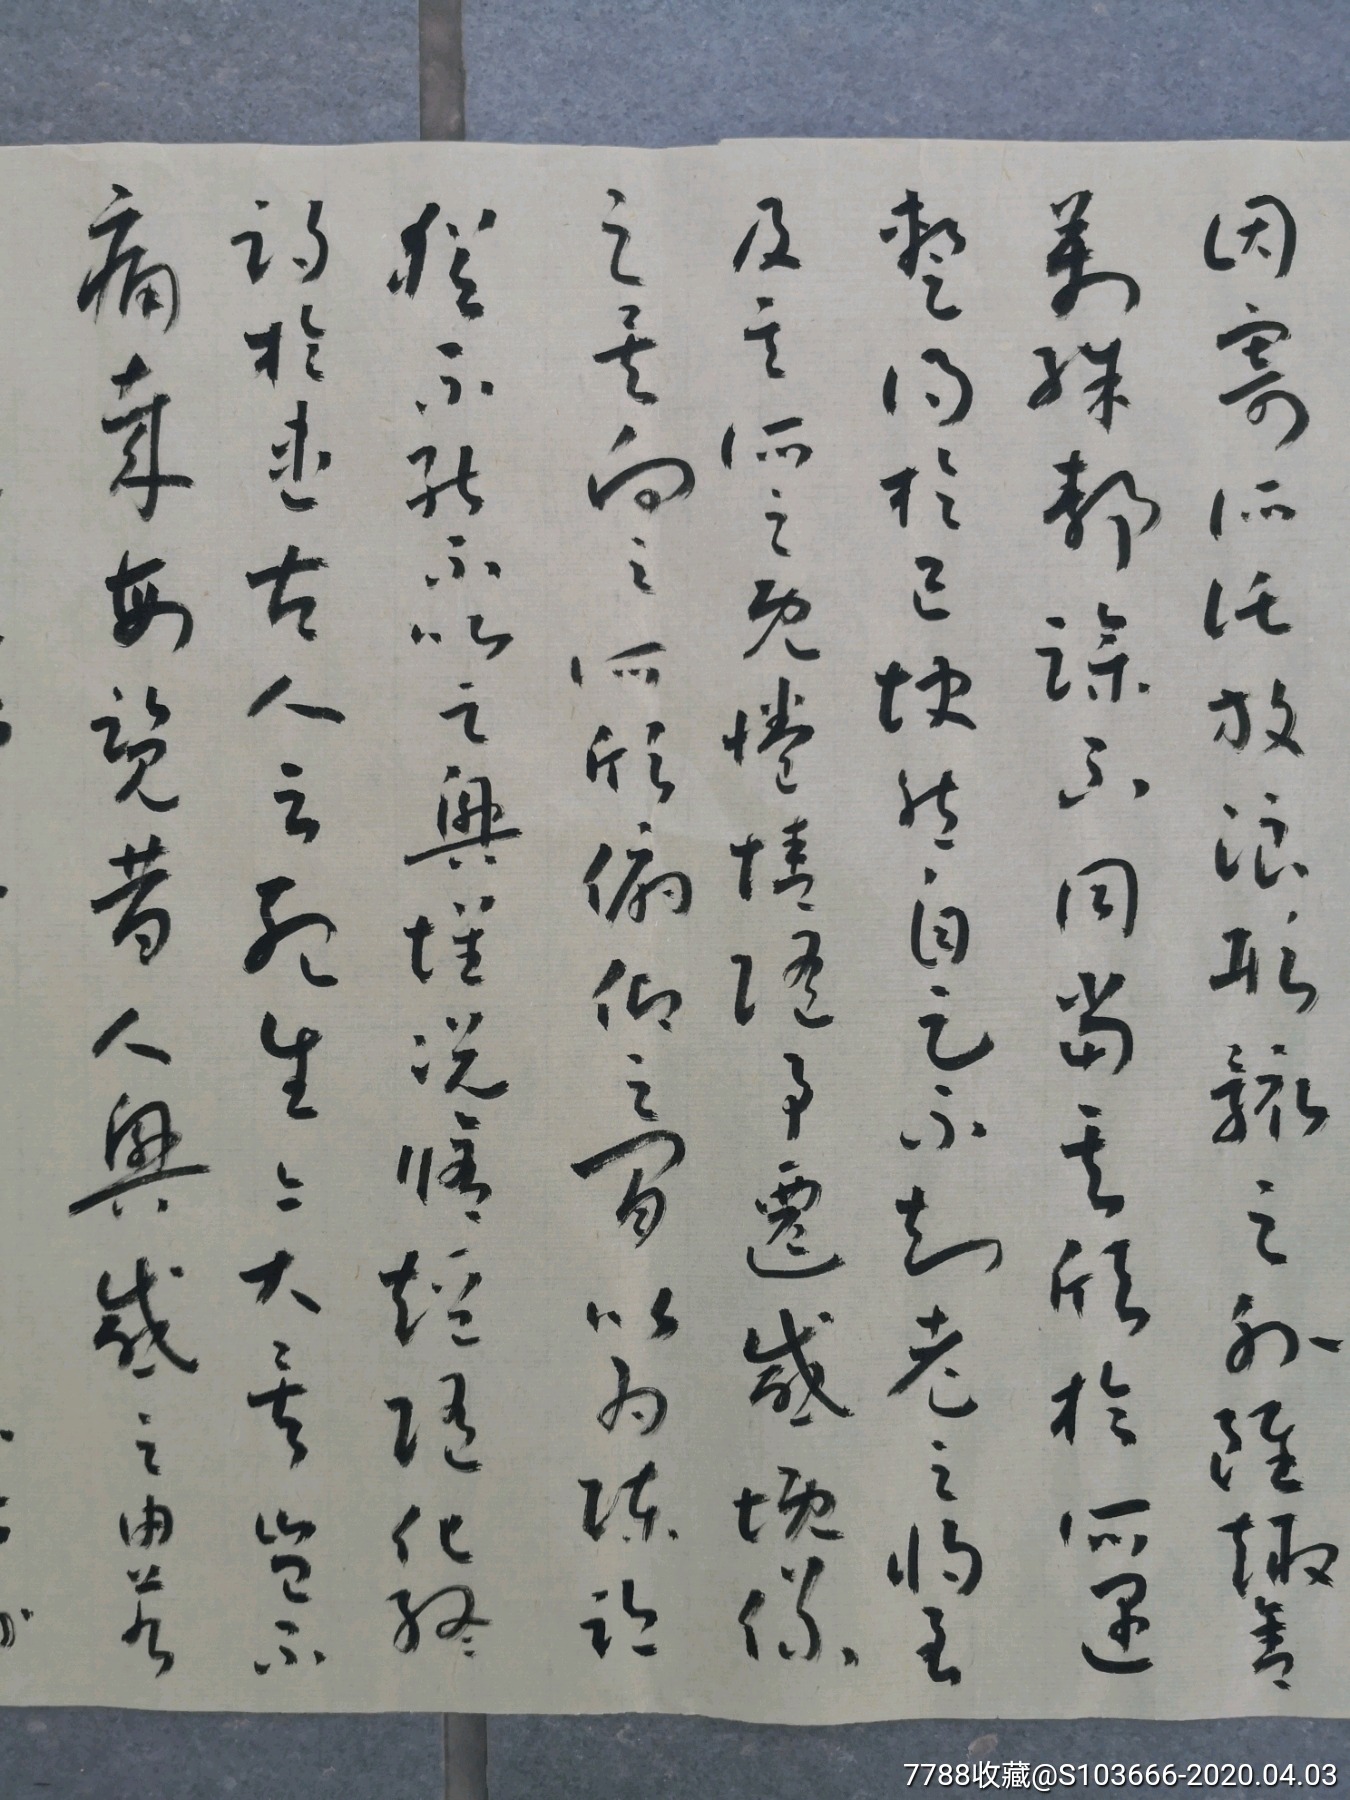 因寄所託放浪形骸之外雖趣舍
萬殊靜躁不同當其欣於所遇
暫得於己快然自足不知老之將至
及其所之既惓情隨事遷感慨係
之矣向之所欣俯仰之間以為陳跡
猶不能不以之興懷況脩短隨化終
期於盡古人云死生亦大矣豈不
痛哉每覽昔人興感之由若
7788收藏@S103666-2020.04.03